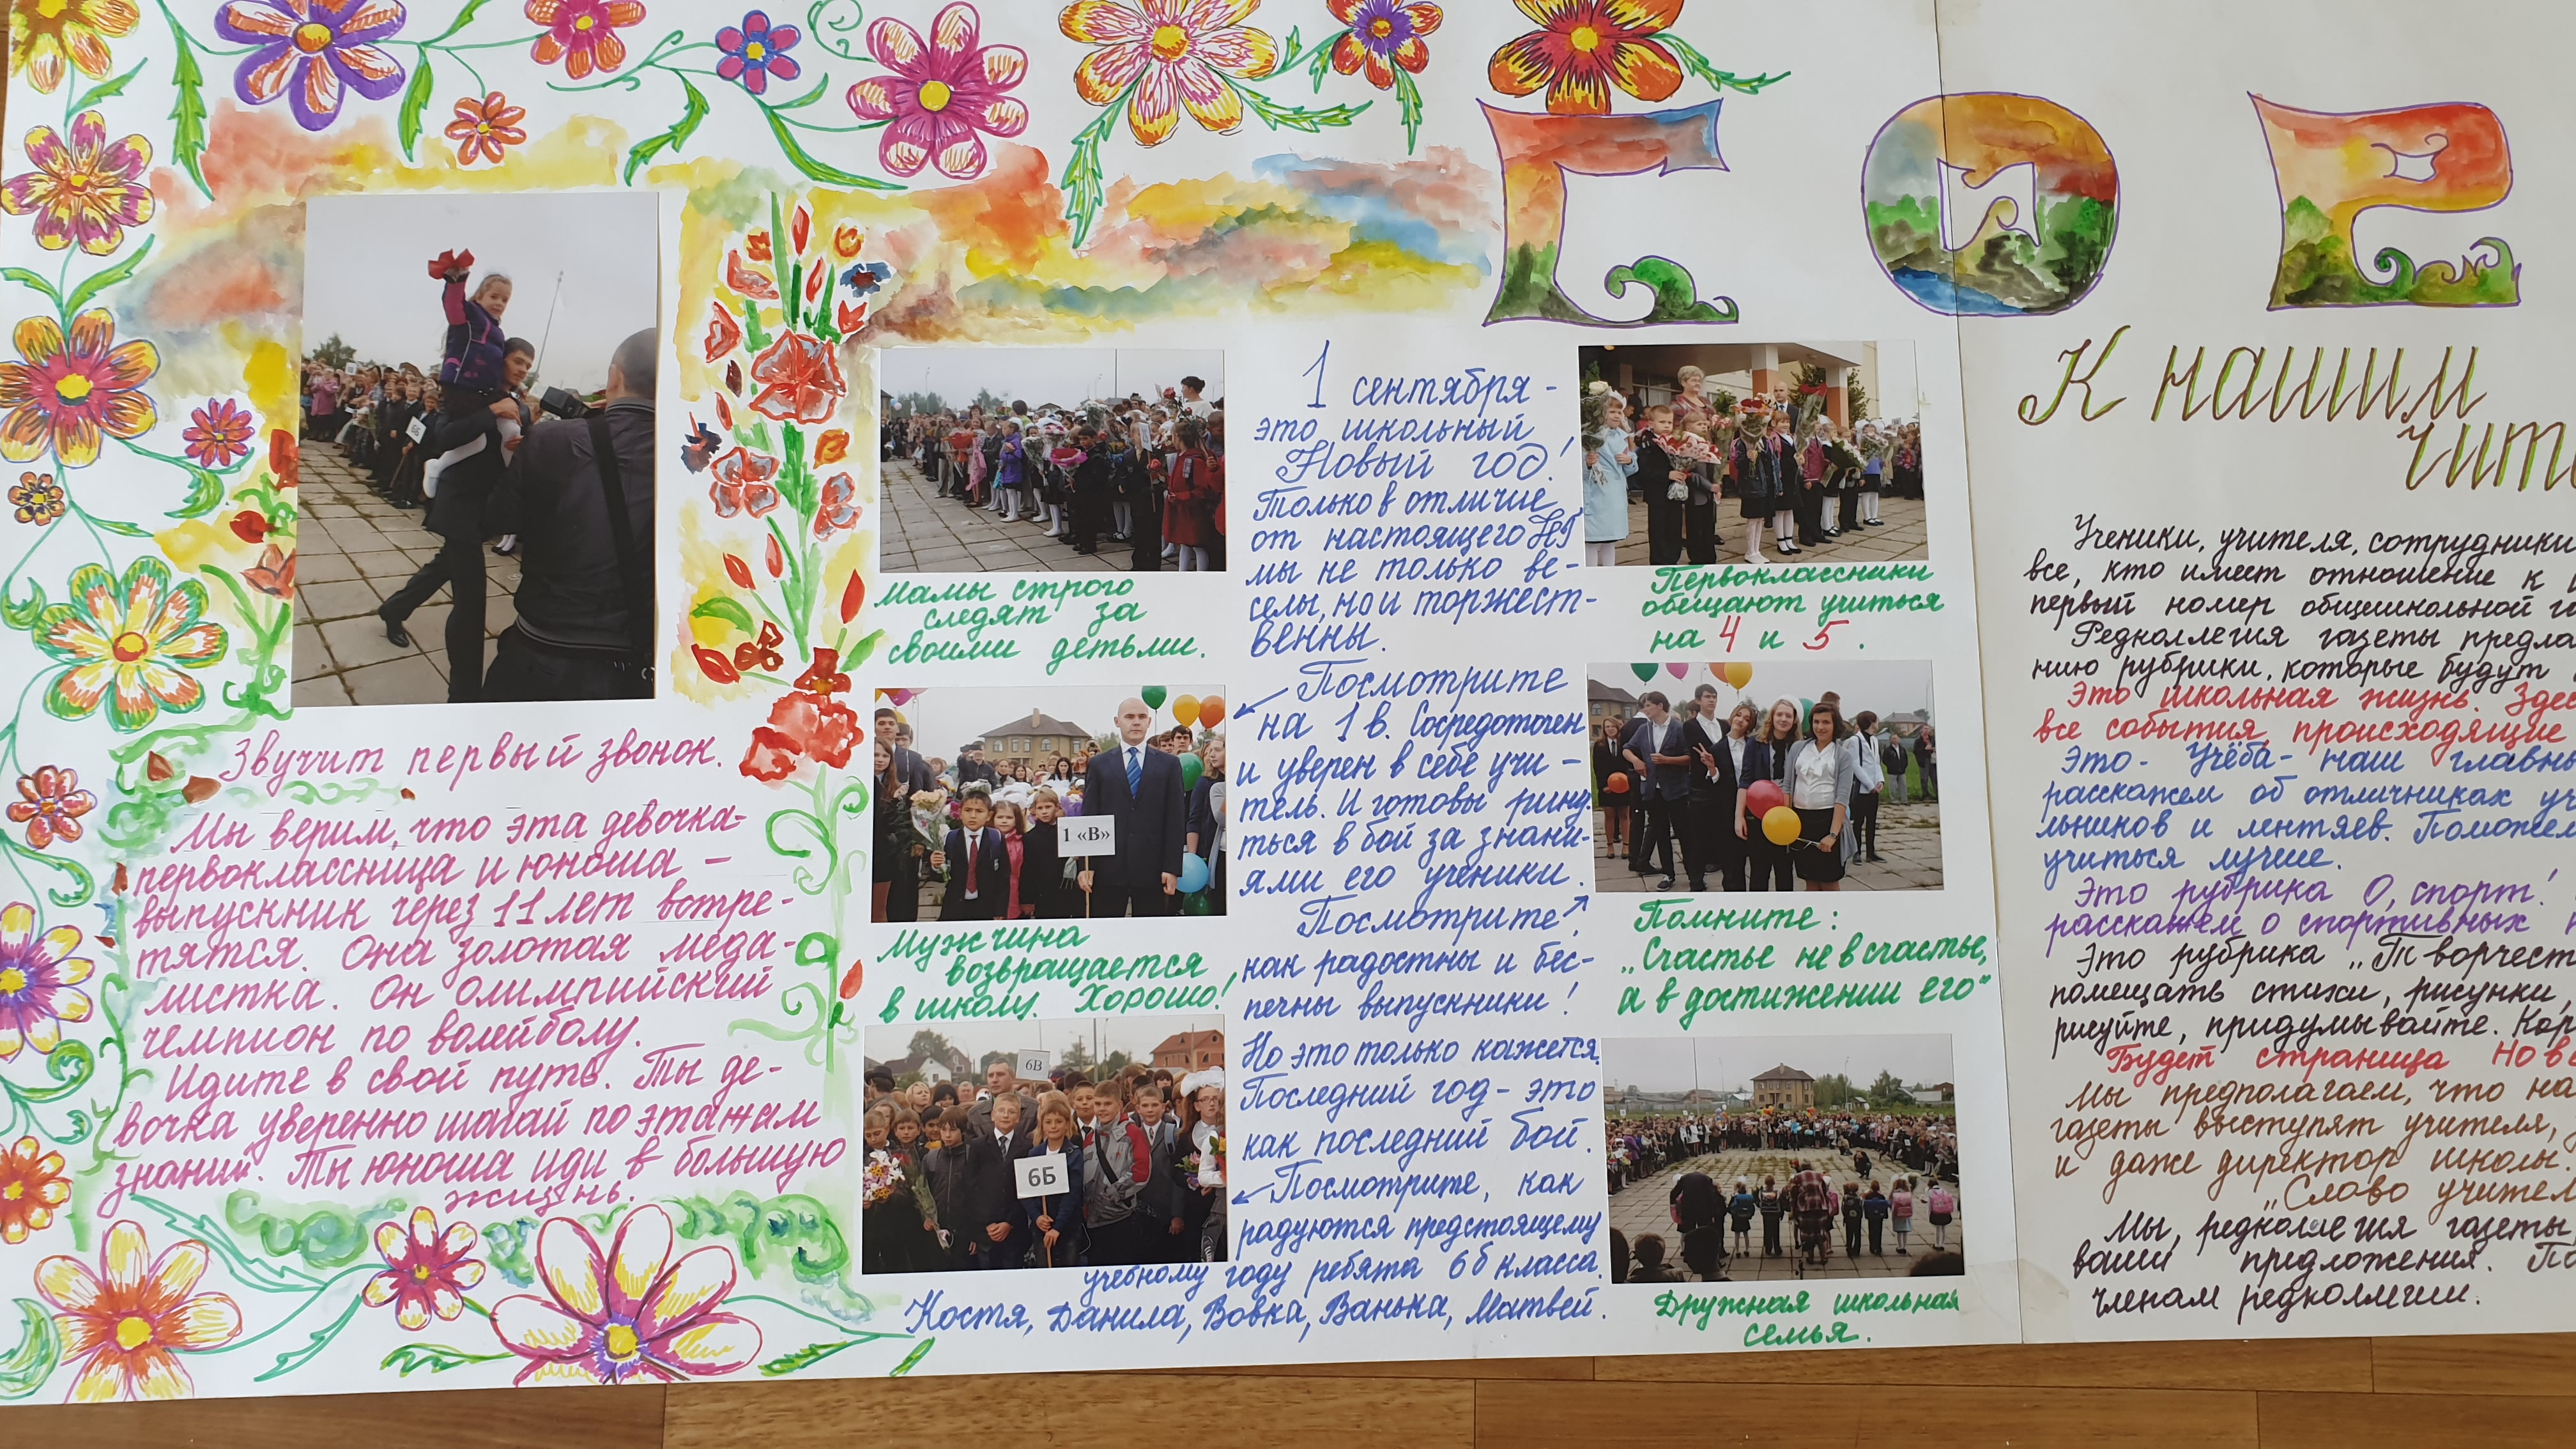 Звучит первый звонок.
Мы верим, что эта девочка-
первоклассница и юноша –
выпускник через 11 лет встре-
тятся. Она золотая меда-
листка. Он олимпийский
чемпион по волейболу.
Идите в свой путь. Ты де-
вочка уверенно шагай по этажам
знаний. Ты юноша иди в большую
жизнь.
Мамы строго
следят за
своими детьми.
1 «В»
Мужчина
возвращается
в школу. Хорошо!
6В
6Б
1 сентября -
это школьный
Новый год!
Только в отличие
от настоящего НГ
мы не только ве-
селы, но и торжест-
венны.
Посмотрите
на 1 в. Сосредоточен
и уверен в себе учи -
тель. И готовы рину-
ться в бой за знани-
ями его ученики.
Посмотрите,
как радостны и бес-
печны выпускники!
Но это только кажется.
Последний год - это
как последний бой.
Посмотрите, как
радуются предстоящему
учебному году ребята 6б класса.
Костя, Данила, Вовка, Ванька, Матвей.
Первоклассники
обещают учиться
на 4 и 5.
Помните:
„Счастье не в счастье,
а в достижении его"
Дружная школьная
семья.
К нашим
чит
Ученики, учителя, сотрудники
все, кто имеет отношение к
первый номер общешкольной г
Редколлегия газеты предла
нию рубрики, которые будут
Это школьная жизнь. Здес
все события, происходящие
Это - Учёба - наш главны
расскажем об отличниках уч
льников и лентяев. Поможем
учиться лучше.
Это рубрика О, спорт!
расскажем о спортивных
Это рубрика „Творчест
помещать стихи, рисунки,
рисуйте, придумывайте. Кор
Будет страница Нов
Мы предполагаем, что на
газеты выступят учителя,
и даже директор школы.
„Слово учител
Мы, редколлегия газеты,
ваши предложения. П
членам редколлегии.